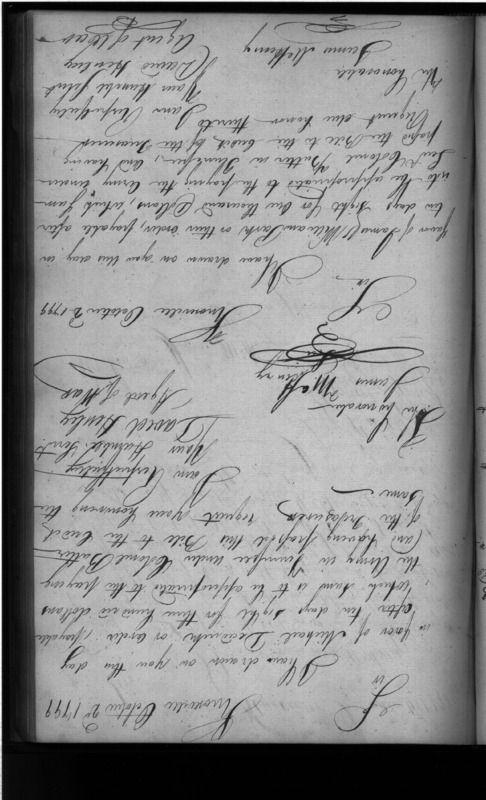 Knoxville October 2d 1799
Sir
I have drawn on you this day
in favor of Michael or order, payable
after ten days sight for three hundred dollars
which sum is to be appropriated to the paying
the Army in Tennessee under Colonel Butler
and having passed this Bill to the credit
of the Treasurer request your honouring the
same
I am Respectfully
Your Humble Servt.
David Henley
Agent of War
The Honorable
James McHenry
Knoxville October 2d 1799
Sir
I have drawn on you this day in
favor of James & William Park or their order, payable after
ten days sight for one thousand Dollars, which sum
is to be appropriated to the paying the Army under
Lieut. Colonel Butler in Tennessee, and having
passed the Bill to the credit of the Treasurer
Request due honor thereto
I am Respectfully
Your Humble Servt
David Henley
Agent of War
The Honorable
James McHenry